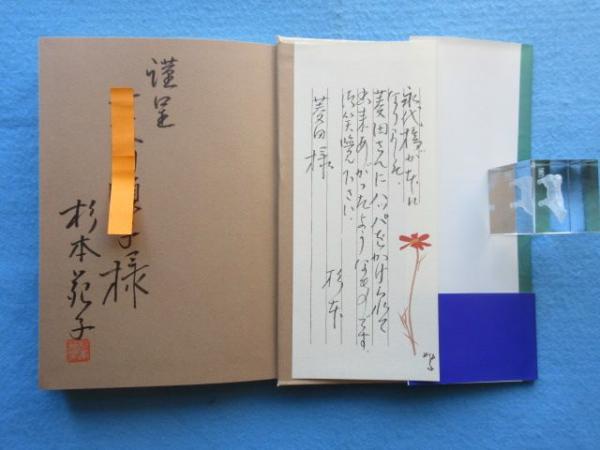 永代橋が本に
なりました。
菱田さんにハッパをかけられて
出来あがったようなものです。
御笑覧下さい。
杉本
菱田様
謹呈
子様
杉本苑子